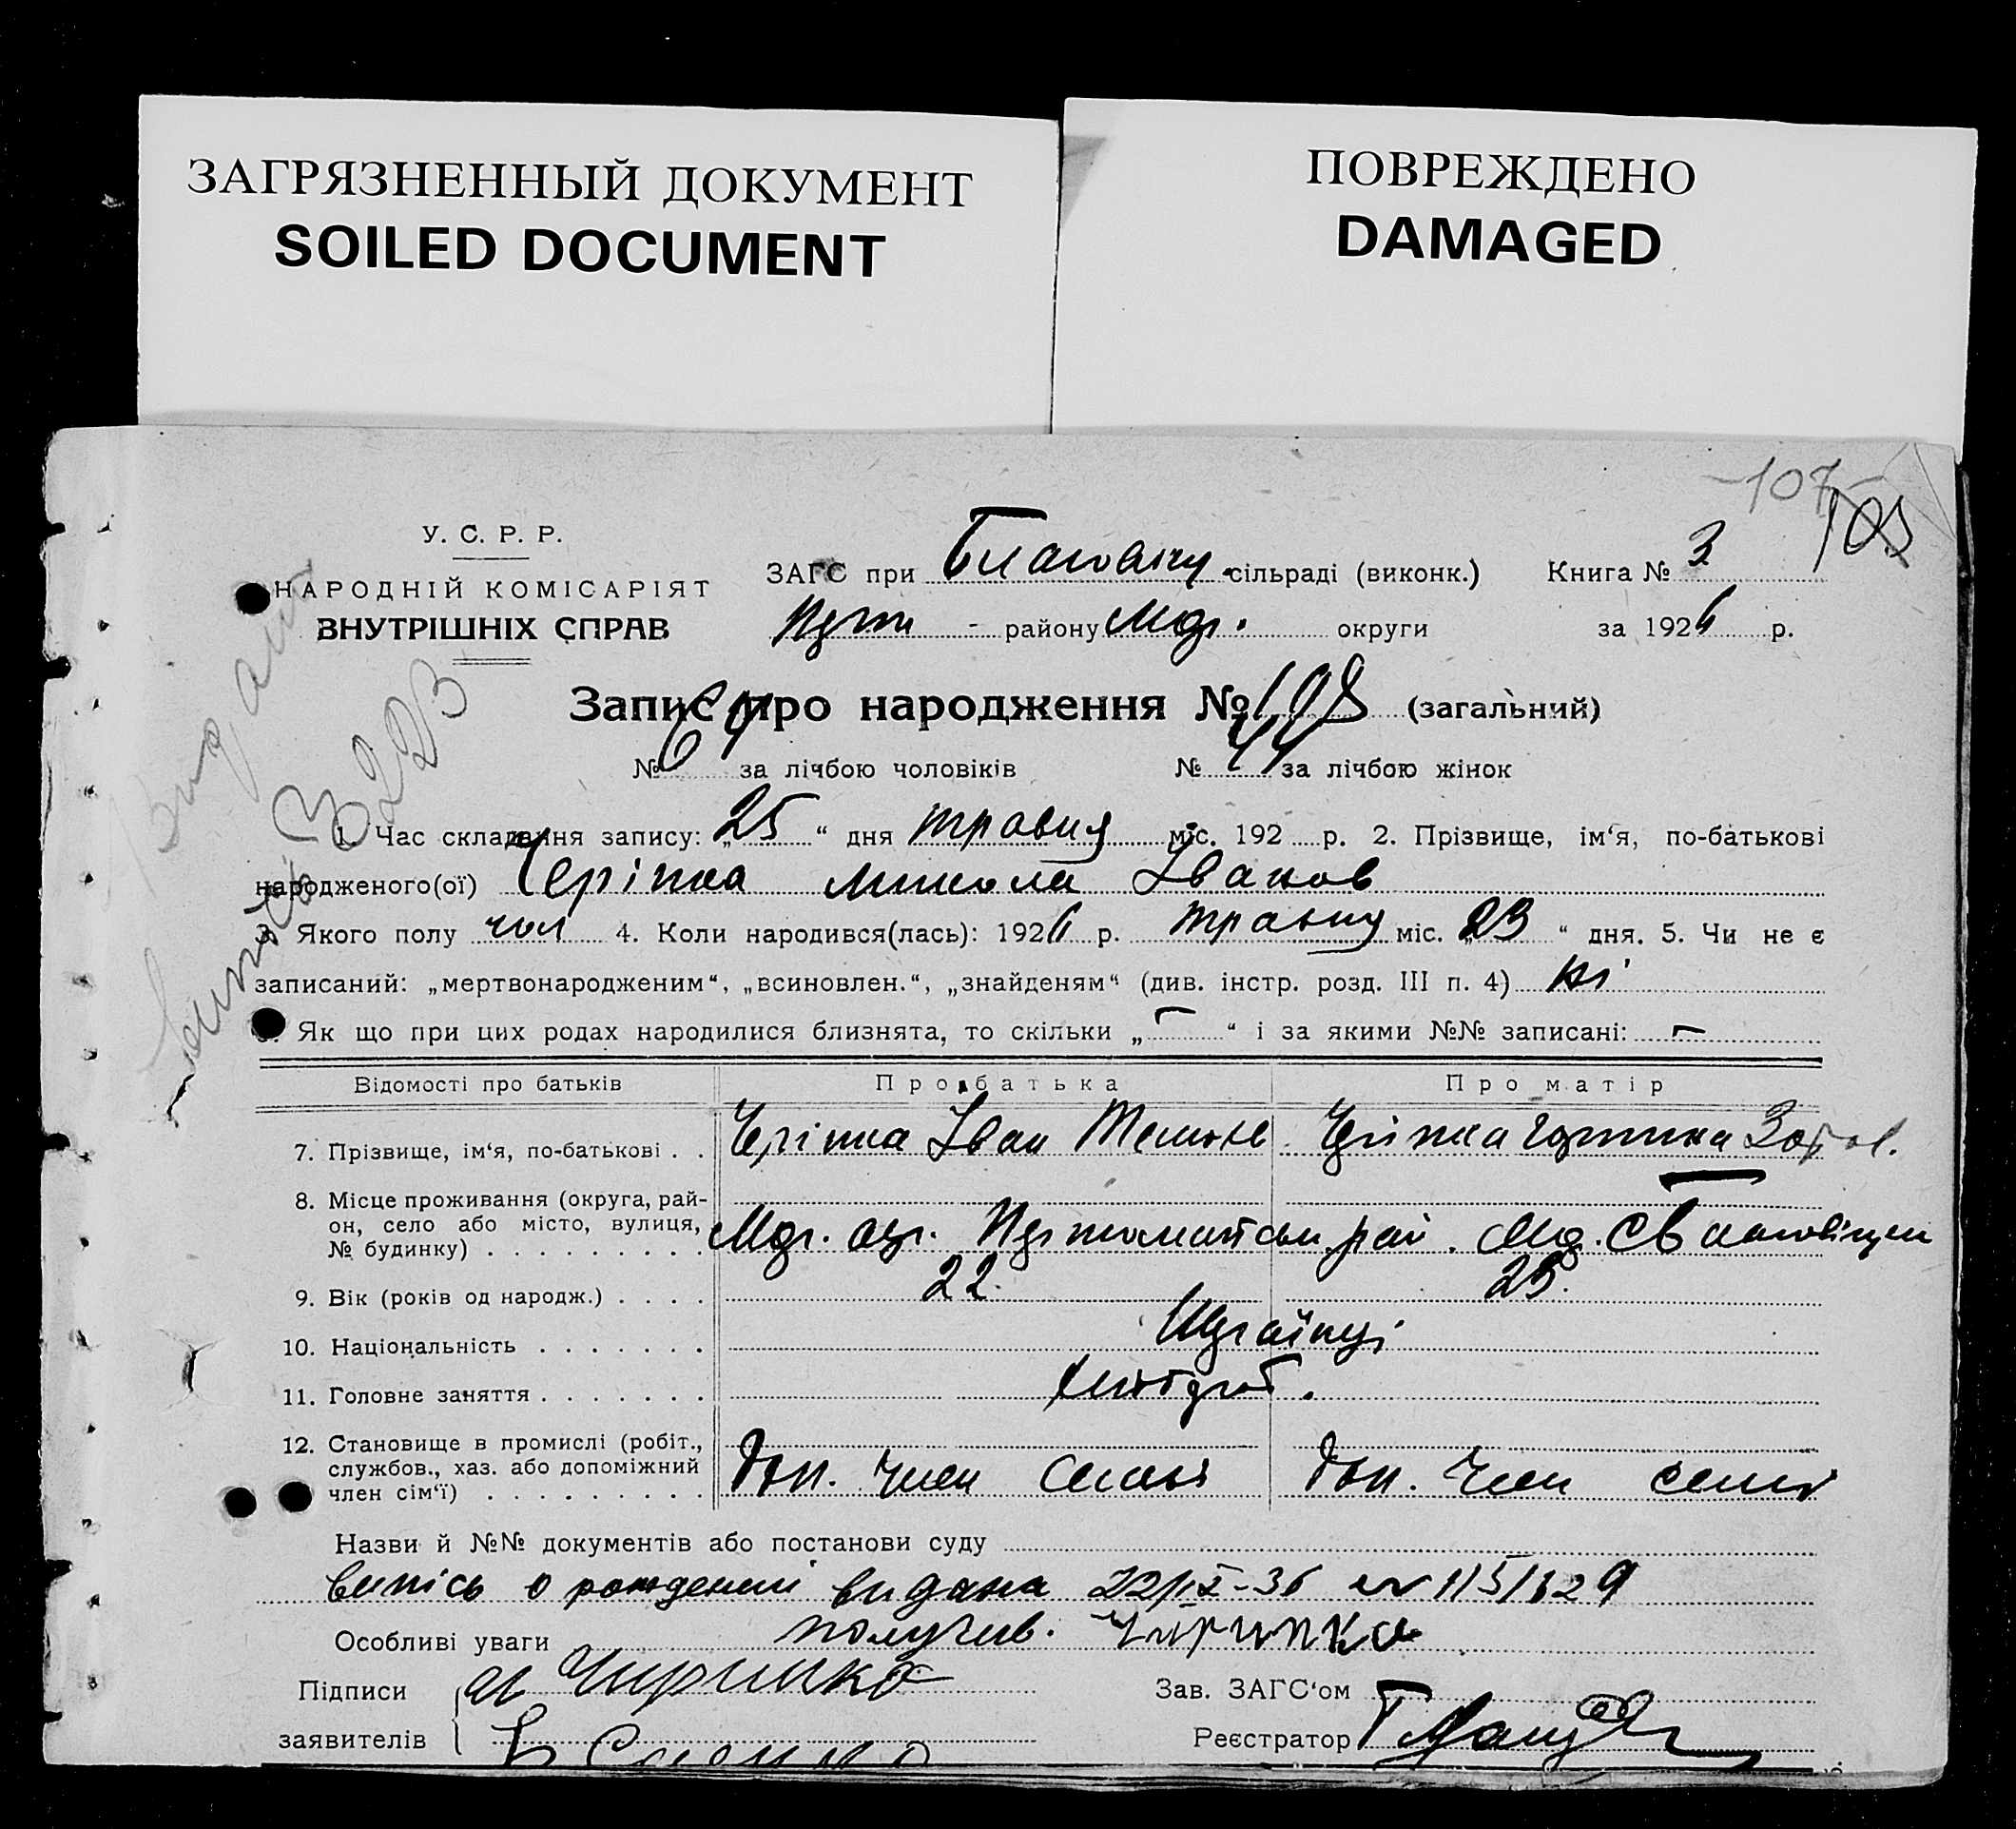 ЗАГРЯЗНЕННЫЙ ДОКУМЕНТ
SOILED DOCUMENT
ПОВРЕЖДЕНО
DAMAGED
107
У. С. Р. Р.
НАРОДНІЙ КОМІСАРІЯТ
ВНУТРІШНІХ СПРАВ
ЗАГС при сільраді (виконк.) Книга № 3
району округи за 1926 р.
Запис про народження № 108 (загальний)
№ 64 за лічбою чоловіків № 44 за лічбою жінок
1. Час складання запису: „25“ дня травня міс. 192 р. 2. Прізвище, ім‘я, по-батькові
народженого(ої) Черіпка Микола Іванов
3. Якого полу чол 4. Коли народився(лась): 1926 р. травня міс. „23“ дня. 5. Чи не є
записаний: „мертвонародженим“, „всиновлен.“, „знайденям“ (див. інстр. розд. III п. 4) ні
Як що при цих родах народилися близнята, то скільки „–“ і за якими №№ записані: –
Відомості про батьків Про батька Про матір
7. Прізвище, ім‘я, по-батькові . . Черіпка Іван Черіпка
8. Місце проживання (округа, рай-
он, село або місто, вулиця,
№ будинку) . . . . . . . . .
9. Вік (років од народж.) . . . . 22. 25.
10. Національність . . . . . . . Українці
11. Головне заняття . . . . . . . хлібороб.
12. Становище в промислі (робіт.,
службов., хаз. або допоміжний
член сім‘ї) . . . . . . . . . доп. член семьї доп. член семї
Назви й №№ документів або постанови суду
випісь о рождении видана
Особливі уваги получив. Чирипка
Підписи Чирипка
заявителів
Зав. ЗАГС‘ом
Реєстратор